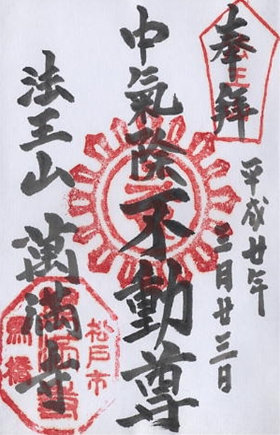 奉拝
平成廿年
三月廿三日
中氣除不動尊
法王山 萬満寺
松戸市
馬橋